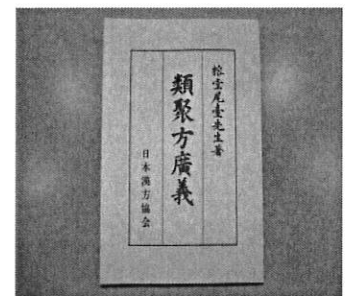 榕堂尾臺先生著
類聚方廣義
日本漢方協会